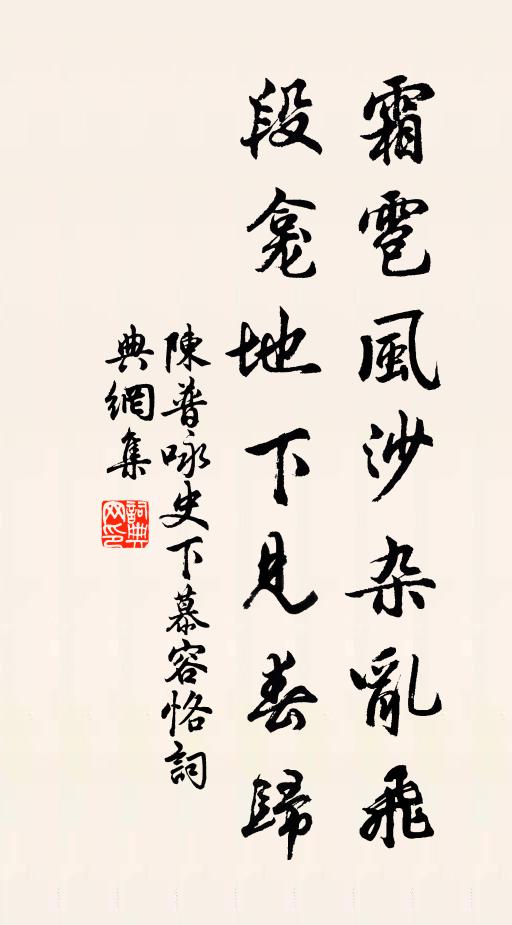 霜雹風沙杂亂飛
段龛地下見春歸
陳普咏史下慕容恪詞
典網集
詞典
网印